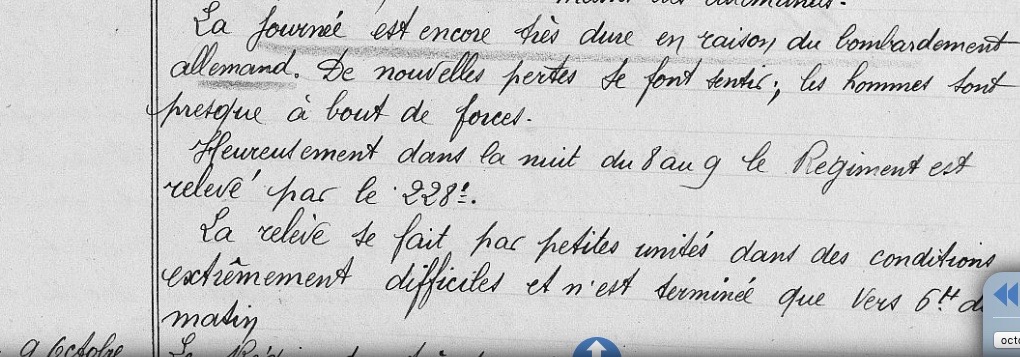 La Journée est encore très dure en raison du bombardement
allemand. De nouvelles pertes se font sentir; les hommes sont
presque à bout de forces.
Heureusement dans la nuit du 8 au 9 le Régiment est
relevé par le 228e.
La relève se fait par petites unités dans des conditions
extrêmement difficiles et n'est terminée que vers 6H d
matin
9 Octobre
octo